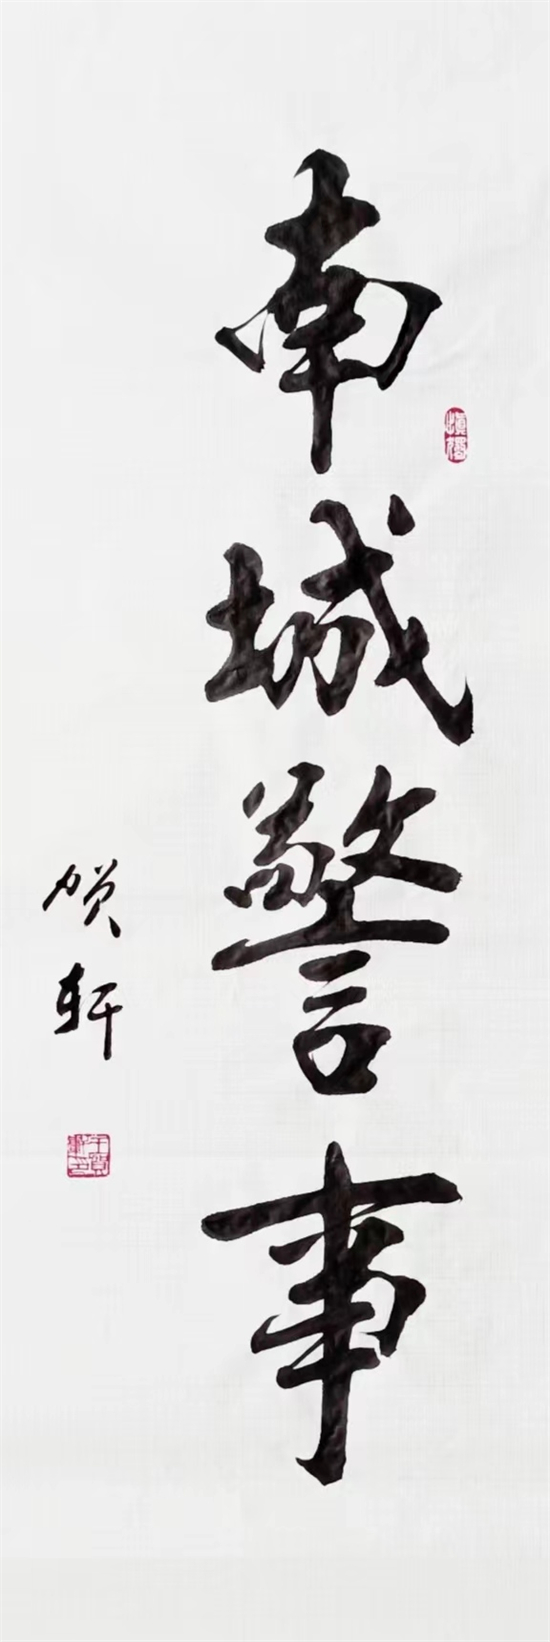 南城警事
贺轩